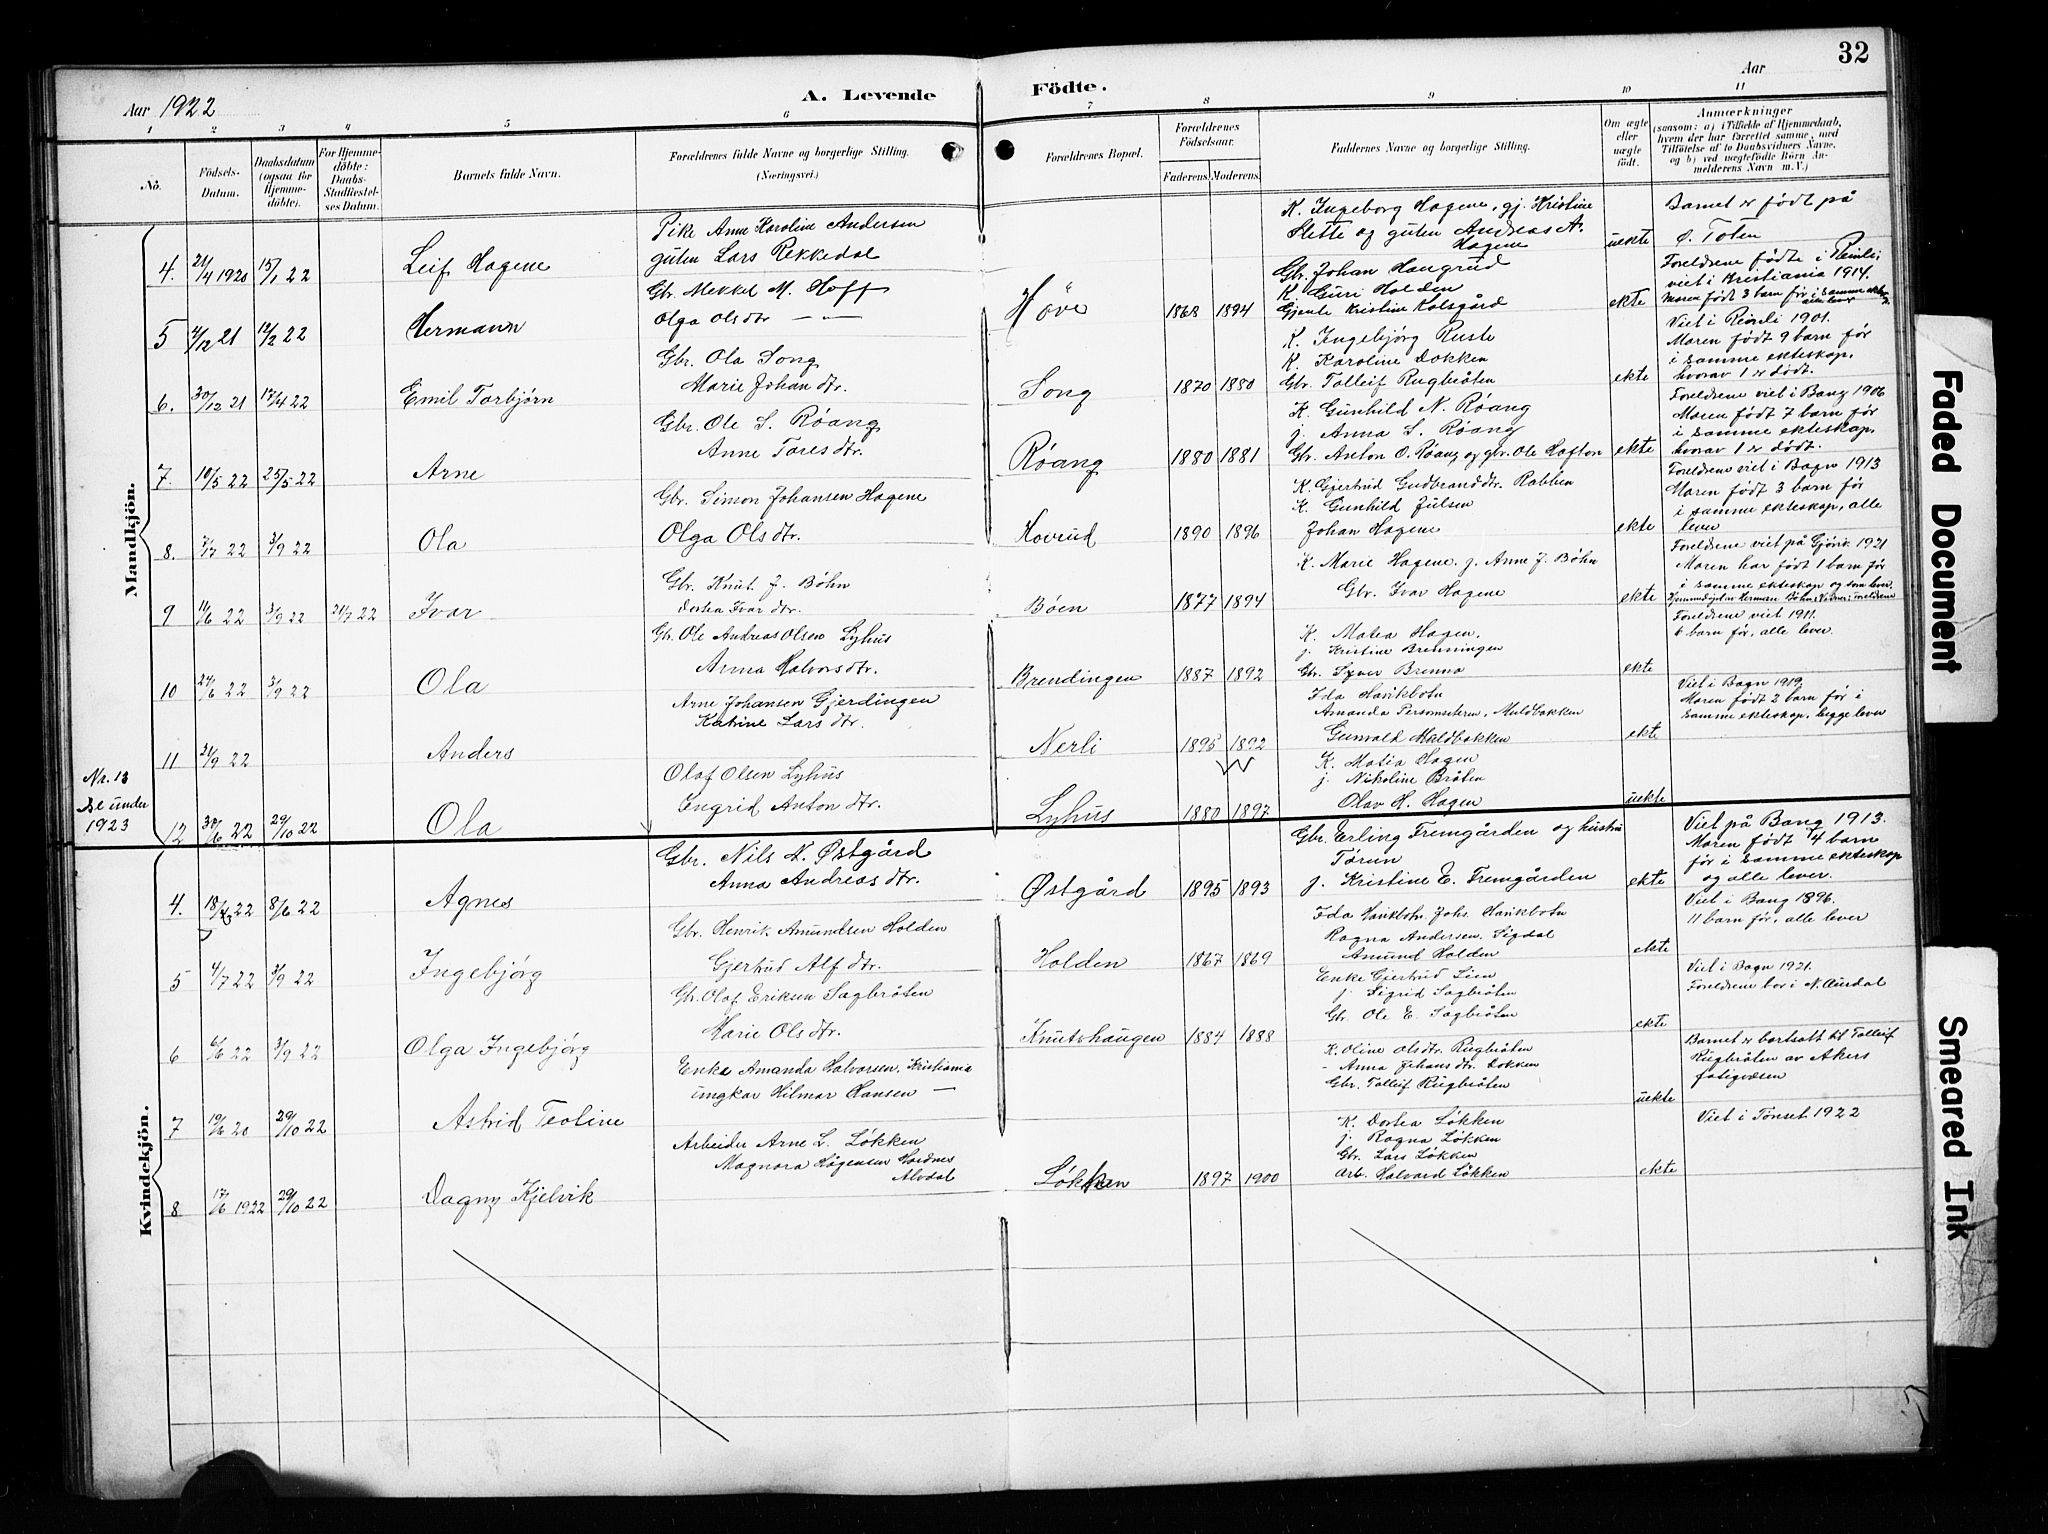 32
Aar 1922
A. Levende Födte.
Aar
1 2 3 4 5 6 7 8 9 10 11
No.
Födsels-Datum.
Daabsdatum (ogsaa for Hjemme-döbte).
For Hjemme-döbte: Daabs-Stadfæstel-ses Datum.
Barnets fulde Navn.
Forældrenes fulde Navne og borgerlige Stilling. (Næringsvei.)
Forældrenes Bopæl.
Forældrenes Födselsaar.
Faderens. Moderens.
Faddernes Navne og borgerlige Stilling.
Om ægte eller uægte födt.
Anmærkninger
(saasom: a) i Tilfælde af Hjemmedaab, hvem der har forrettet samme, med Tilföielse af to Daabsvidners Navne, og b) ved uægtefödte Börn Anmelderens Navn m. V.)
Mandkjön.
4. 21/4 1920 15/1 22 Leif Hagene
Pike Anne Karoline Andersen
guten Lars Rekkedal
K. Ingeborg Hagene, gj. Kristine
Slette og guten Andreas A.
Hagene
uekte
Barnet er født på
Ø. Toten
5 4/12 21 12/2 22 Hermann
Gbr. Mekkel M. Hoff
Olga Olsdtr — —
Høve 1868 1894
Gbr. Johan Haugrud
K. Guri Holden
Gjente Kristine Kolsgård
ekte
Foreldrene födte i Reinli;
viet i Kristiania 1914.
Moren født 3 barn før i samme ektesk.
6. 30/12 21 17/4 22 Emil Torbjørn
Gbr. Ola Song
Marie Johan dtr.
Song 1870 1880
K. Ingebjørg Ruste
K. Karoline Dokken
Gbr. Tolleif Rugbråten
ekte
Viet i Reinli 1901.
Moren født 9 barn før
i samme ekteskap,
hvorav 1 er dødt.
7. 10/5 22 25/5 22 Arne
Gbr. Ole S. Röang
Anne Tores dtr.
Röang 1880 1881
K. Gunhild N. Röang
j. Anna S. Röang
Gbr. Anton O. Röang og gbr. Ole Hofton
ekte
Foreldrene viet i Bang 1906
Moren født 7 barn før
i samme ekteskap,
hvorav 1 er dødt.
8. 7/7 22 3/9 22 Ola
Gbr. Simon Johansen Hagene
Olga Ols dtr.
Hovrud 1890 1896
K. Gjertrud Gudbrand dtr. Rabben
K. Gunhild Julsen
Johan Hagene
ekte
Foreldrene viet i Bagn 1913
Moren født 3 barn før
i samme ekteskap, alle
lever
9 11/6 22 3/9 22 21/7 22 Ivar
Gbr. Knut J. Bøhn
Dortea Ivar dtr.
Böen 1877 1894
K. Marie Hagene. j. Anne J. Bøhn
Gbr. Ivar Hagene
ekte
Foreldrene viet på Gjövik 1921
Moren har født 1 barn før
i samme ekteskap og som lever.
10 24/6 22 3/9 22 Ola
Gbr. Ole Andreas Olsen Lyhus
Anna Halvors dtr.
Brendingen 1887 1892
K. Matea Hagen.
j. Kristine Brenningen
Gbr. Syver Brenna
ekte
Foreldrene viet 1911.
6 barn før, alle lever.
11 31/9 22 Anders
Arne Johansen Gjerdingen
Katrine Lars dtr.
Nerli 1895 1892
Ida Havikbotn
Amanda Muldbakken
Gunvald Muldbakken
ekte
Viet i Bagn 1919.
Moren født 2 barn før i
samme ekteskap, begge lever
Nr. 13
se under
1923
12 30/6 22 29/10 22 Ola
Olaf Olsen Lyhus
Engrid Anton dtr.
Lyhus 1880 1897
K. Matia Hagen
j. Nikoline Bråten
Olav H. Hagen
uekte
Kvindekjön.
4. 18/4 22 8/6 22 Agnes
Gbr. Nils N. Østgård
Anna Andreas dtr.
Østgård 1895 1893
Gbr. Erling Fremgården og hustru
Torun
j. Kristine E. Fremgården
ekte
Viet på Bang 1913.
Moren født 4 barn
før i samme ekteskap
og alle lever.
5 4/7 22 3/9 22 Ingebjørg
Gbr. Henrik Amundsen Holden
Gjertrud Alf dtr.
Holden 1867 1869
Ida Havikbotn. Johs. Havikbotn
Ragna Andersen, Sigdal
Amund Holden
ekte
Viet i Bang 1896.
11 barn før, alle lever
6 6/6 22 3/9 22 Olga Ingebjørg
Gbr. Olaf Eriksen Sagbråten
Marie Ols dtr.
Knutshaugen 1884 1888
Enke Gjertrud Lien
j. Sigrid Sagbråten
Gbr. Ole E. Sagbråten
ekte
Viet i Bagn 1921.
Foreldrene bor i N. Aurdal
7 19/6 20 29/10 22 Astrid Teoline
Enke Amanda Halvorsen, Kristiania
ungkar Hilmar Hansen —
K. Oline Olsdtr. Rugbråten
- Anna Johansdtr. Lokken
Gbr. Tolleif Rugbråten
uekte
Barnet er bortsatt til Tolleif
Rugbråten av Akers
fatigvesen
8 17/6 1922 29/10 22 Dagny Kjelvik
Arbeider Arne L. Løkken
Magnora Hågensen Hordnes
Alvdal
Løkken 1897 1900
K. Dortea Løkken
j. Ragna Løkken
Gbr. Lars Løkken
Arb. Halvard Løkken
ekte
Viet i Tönset 1922
Faded Document
Smeared Ink